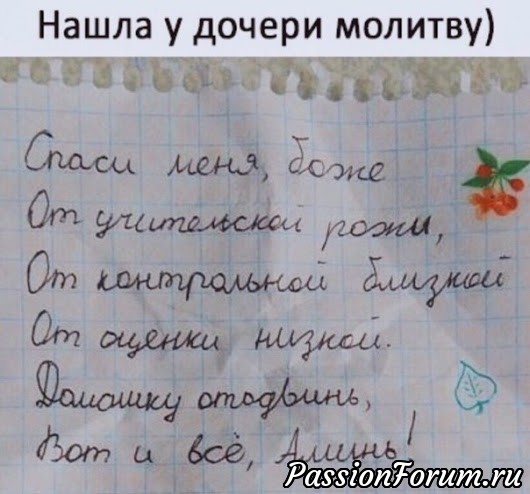 Нашла у дочери молитву)
Спаси меня, боже
От учительской рожи,
От контрольной близкой
От оценки низкой.
Домашку отодвинь,
Вот и всё, Аминь!
PassionForum.ru